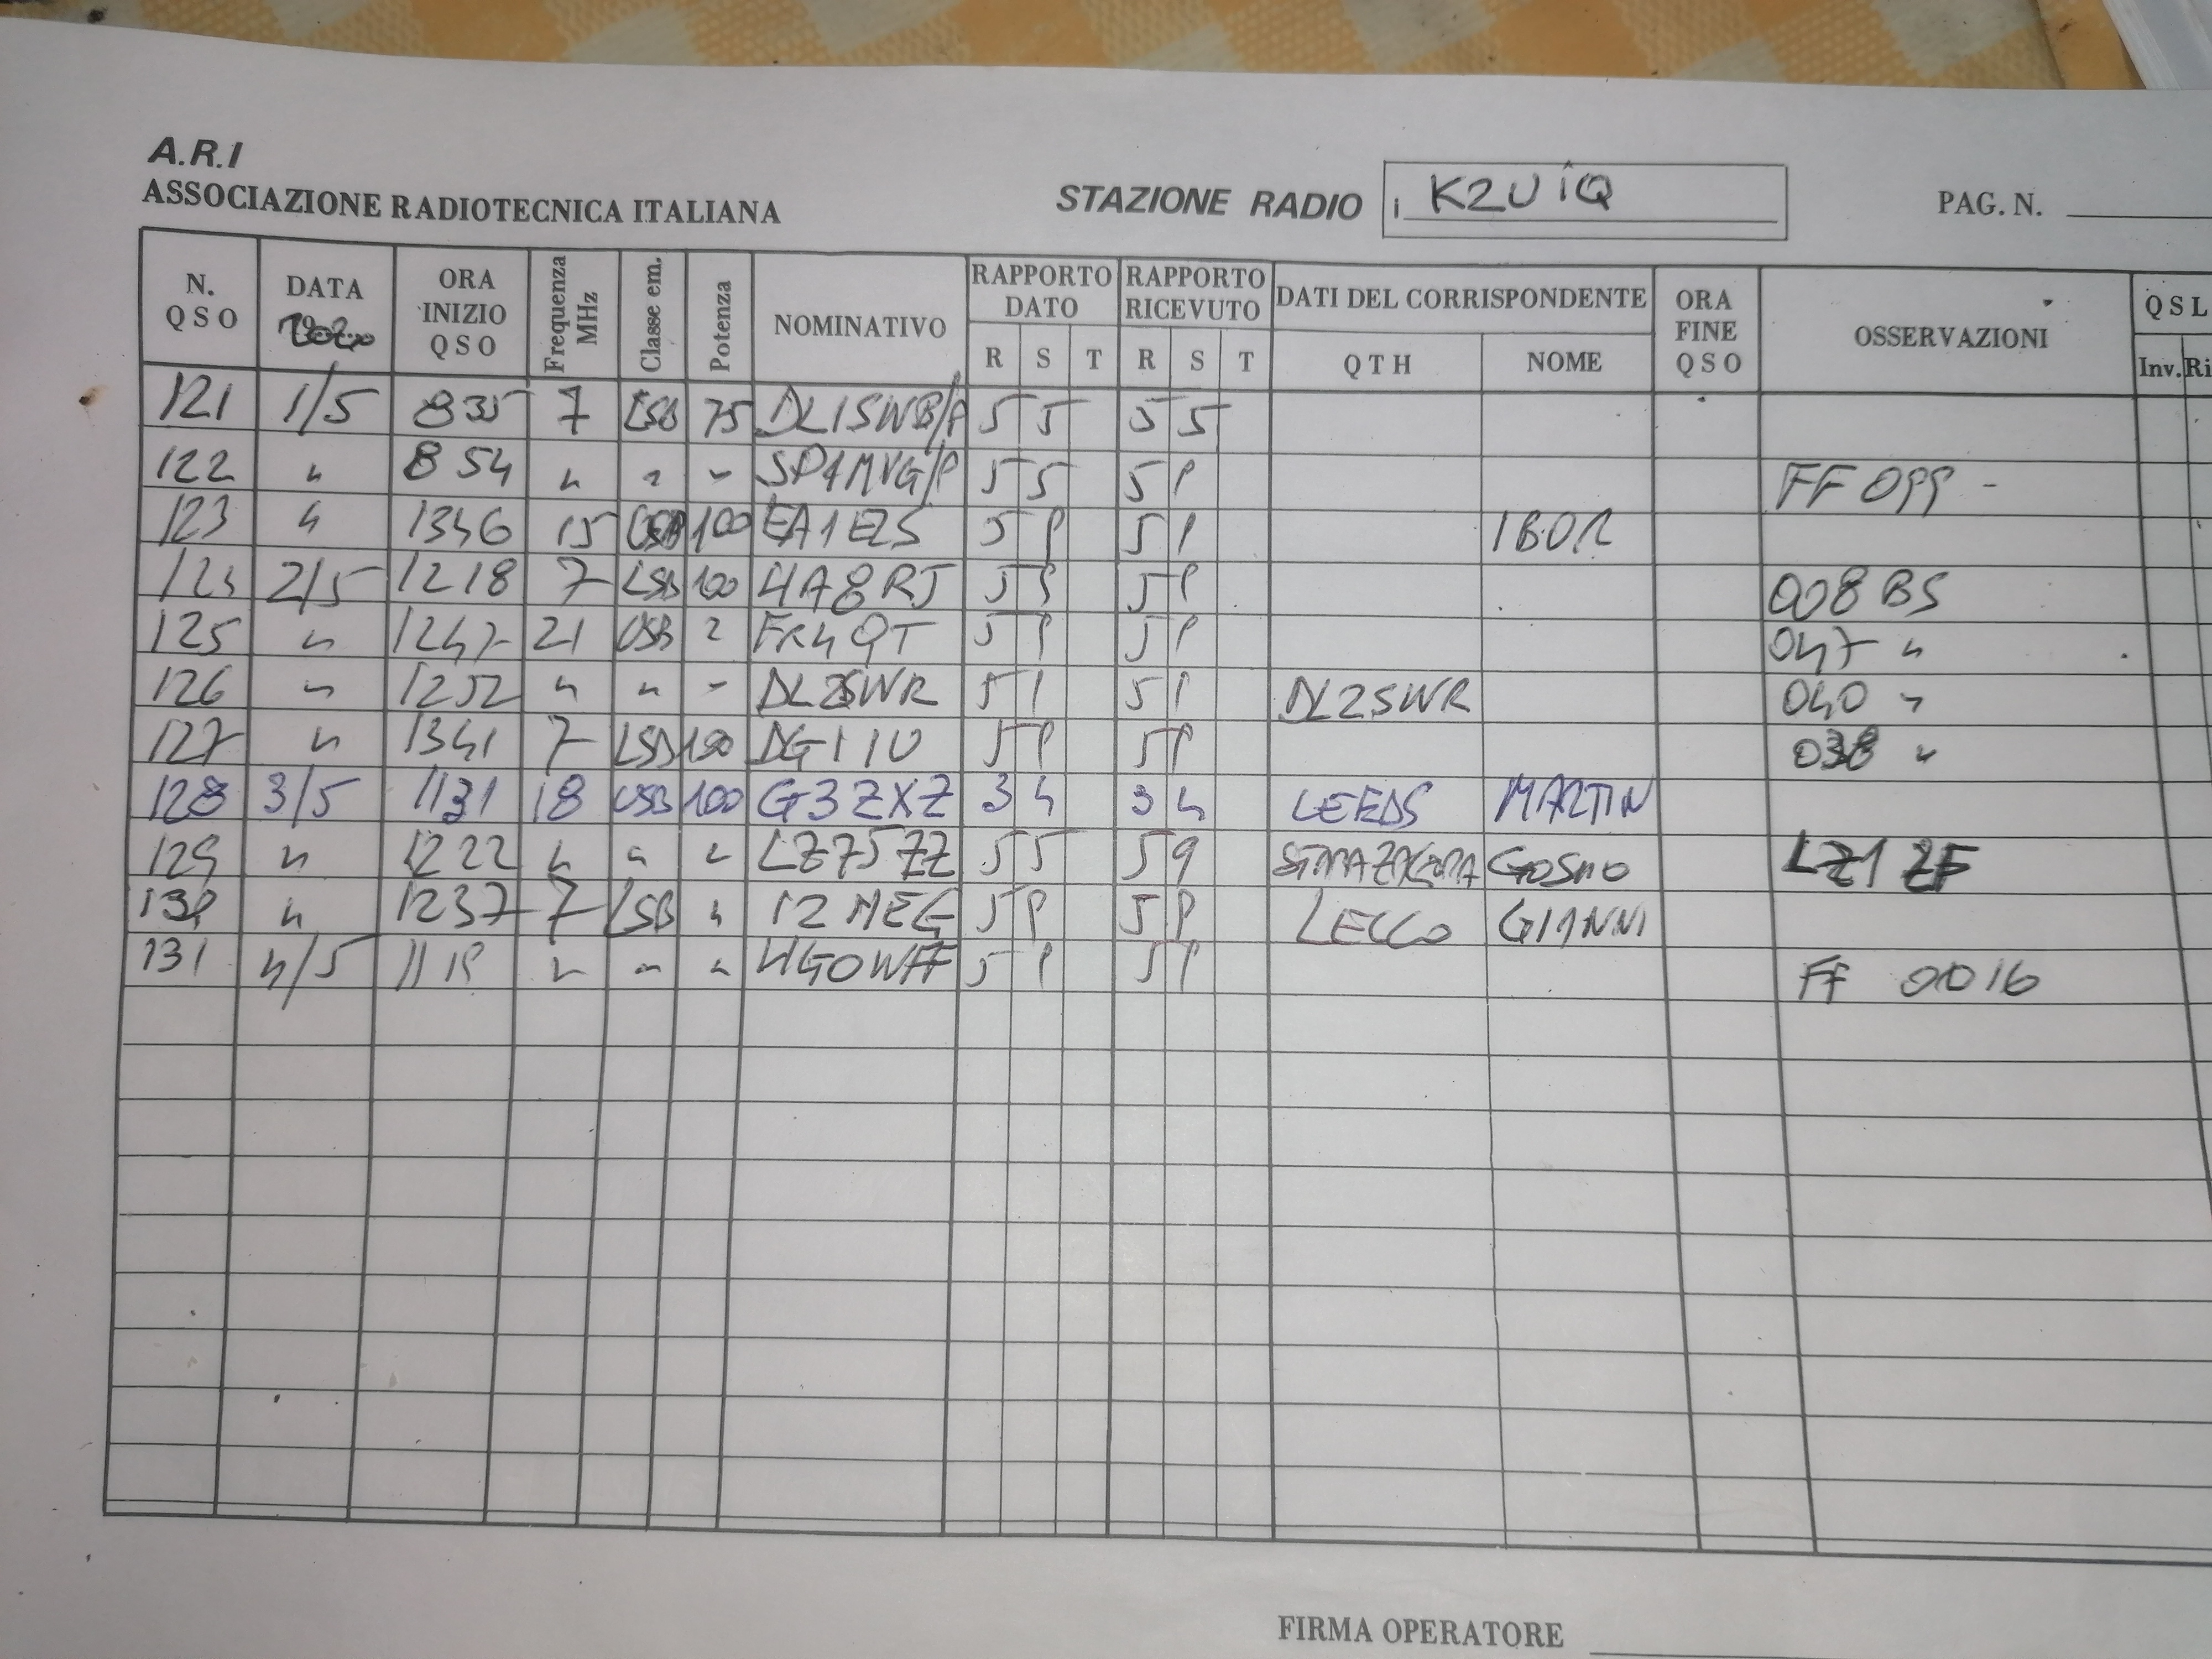 A.R.I
ASSOCIAZIONE RADIOTECNICA ITALIANA
STAZIONE RADIO i K2UIQ
PAG. N.
N. QSO DATA 2020 ORA INIZIO QSO Frequenza MHz Classe em. Potenza NOMINATIVO RAPPORTO DATO R S T RAPPORTO RICEVUTO R S T DATI DEL CORRISPONDENTE QTH NOME ORA FINE QSO OSSERVAZIONI QSL Inv. Ri
121 1/5 835 7 LSB 75 DL1SWB/P 5 5 5 5
122 " 854 " " " SP4MVG/P 5 5 5 9 FF 099 -
123 " 1346 15 USB 100 EA1EZS 5 9 5 9 IBOR
124 2/5 1218 7 LSB 100 HA8RJ 5 9 5 9 008 BS
125 " 1247 21 USB " FR4QT 5 9 5 9 047 "
126 " 1252 " " " DL2SWR 5 9 5 9 DL2SWR 040 "
127 " 1341 7 LSB 100 DG1IU 5 9 5 9 038 "
128 3/5 1131 18 USB 100 G3ZXZ 3 4 3 4 LEEDS MARTIN
129 " 1222 " " " LZ75ZZ 5 5 5 9 LZ1ZF
130 " 1237 7 LSB " I2MEG 5 9 5 9 LECCO GIANNI
131 4/5 1119 " " " HG0WFF 5 9 5 9 FF 0016
FIRMA OPERATORE